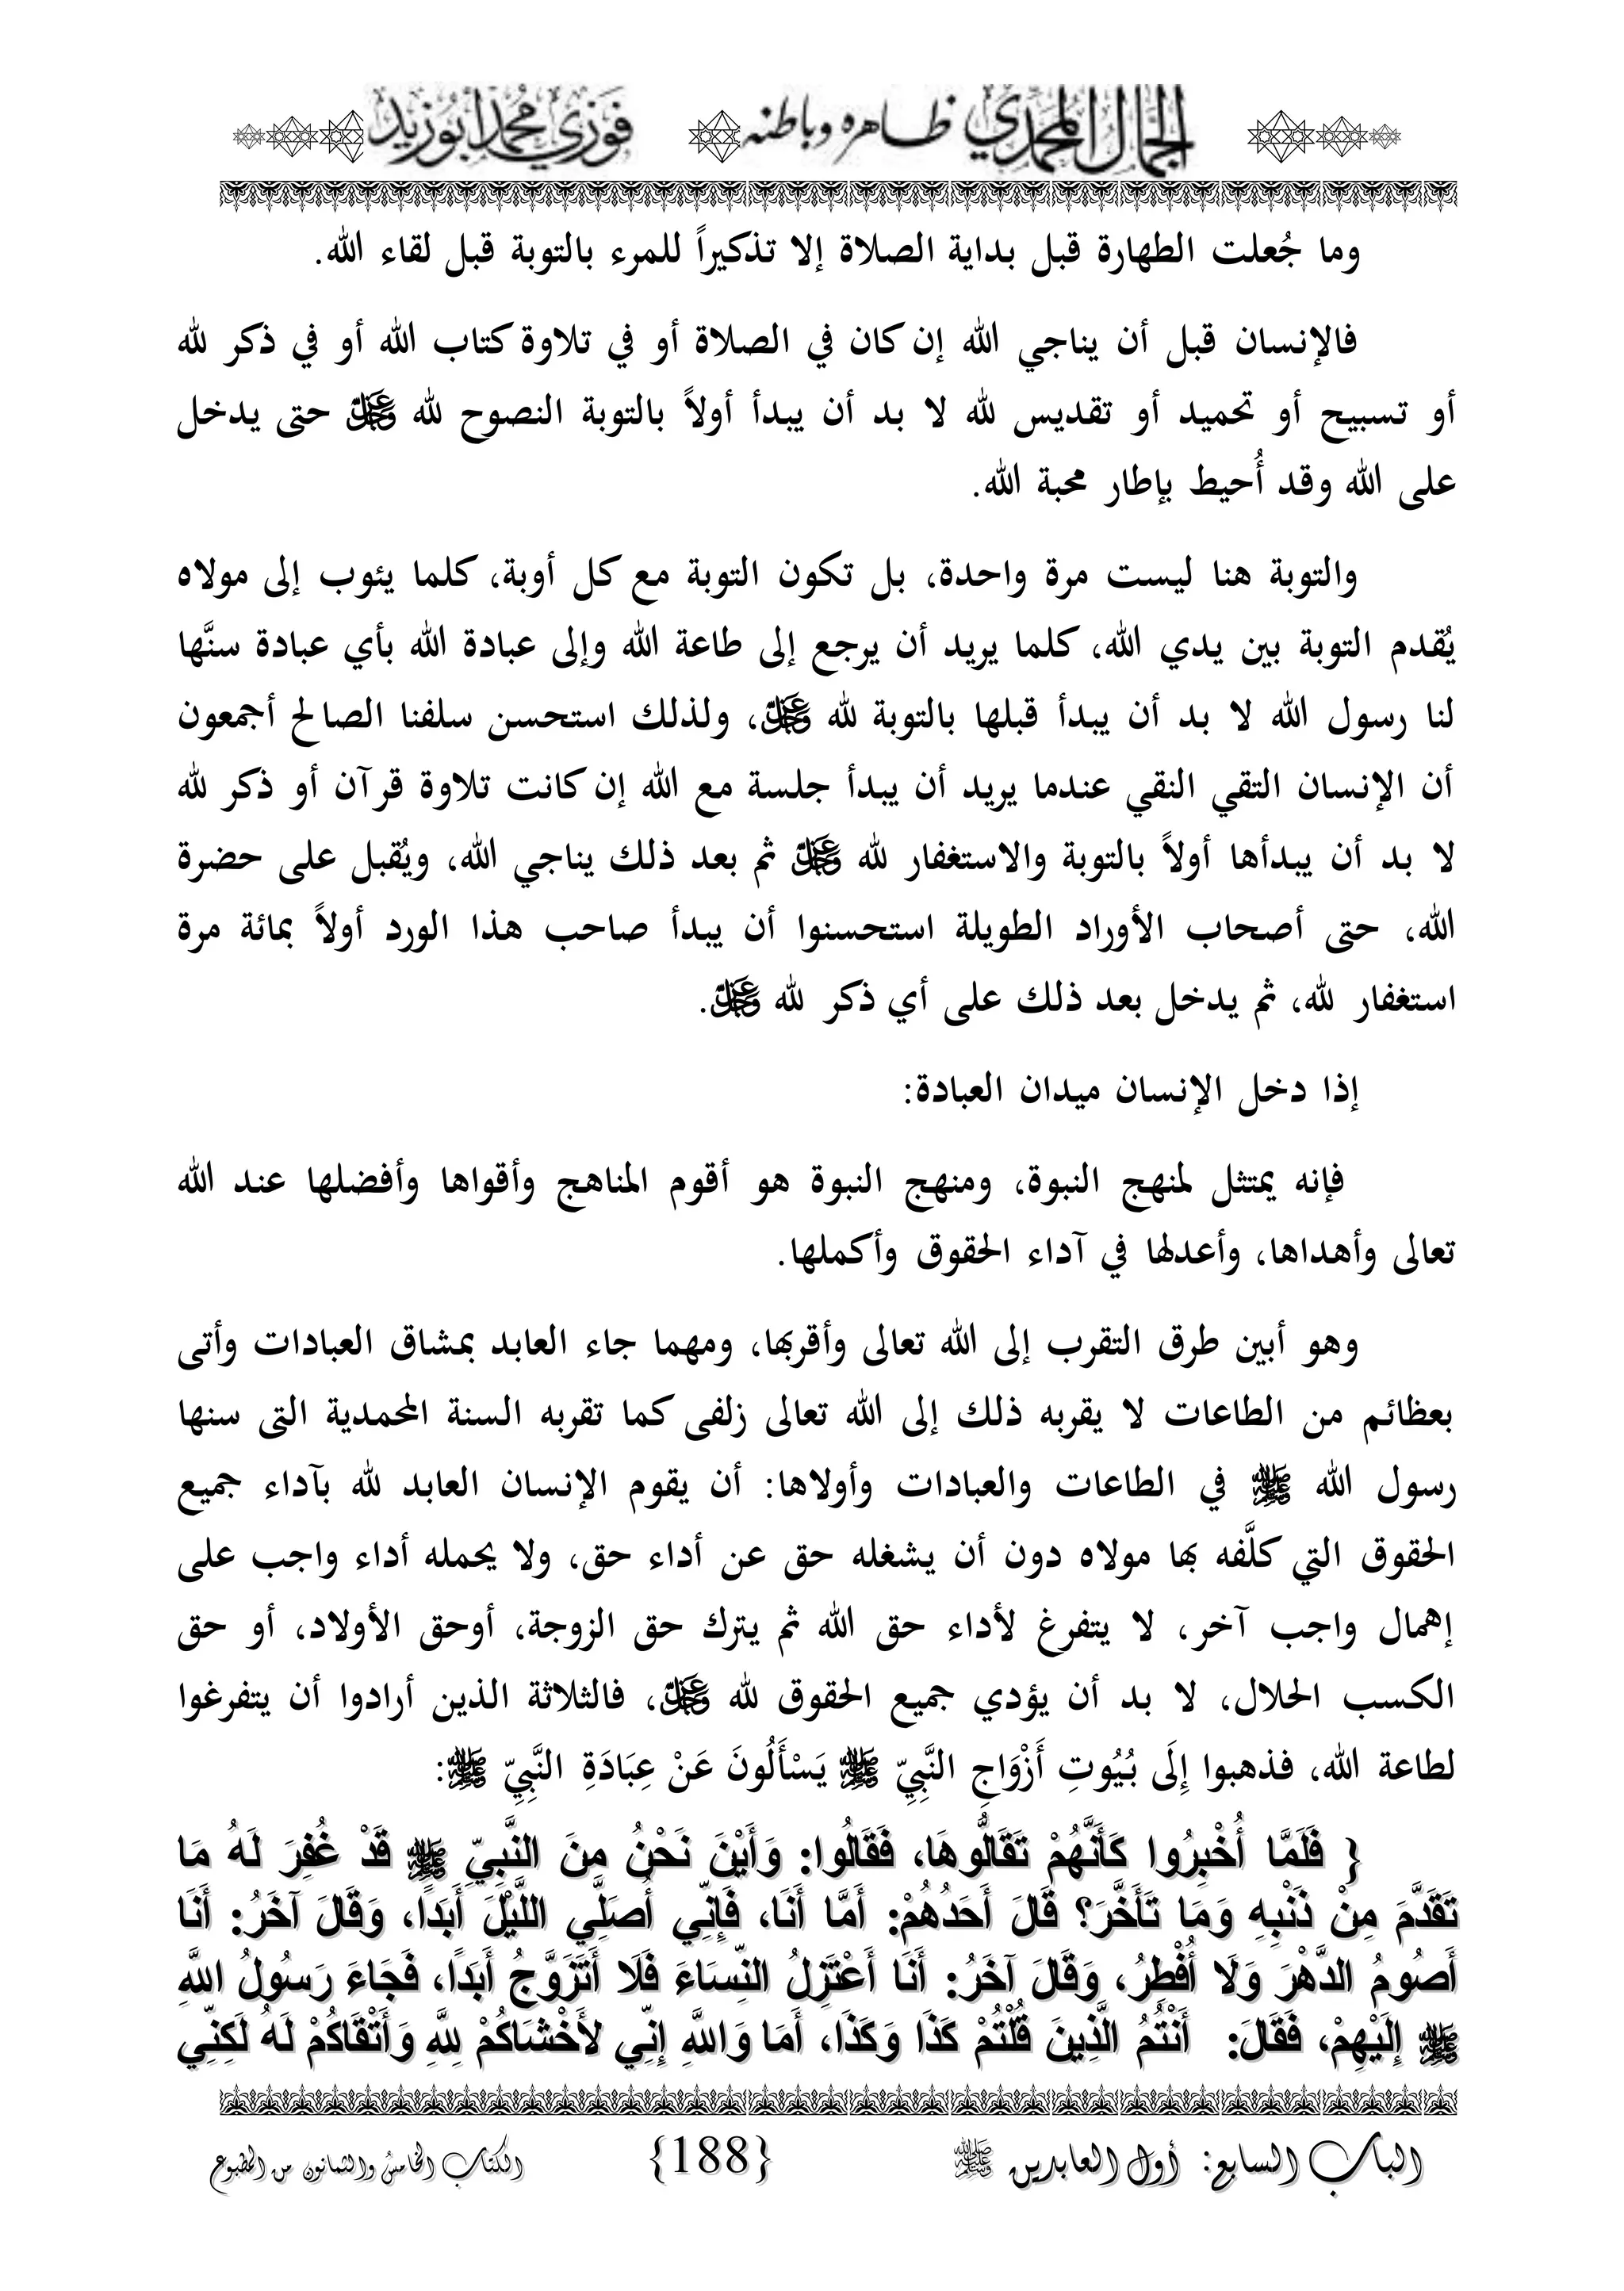 الجمال المحمدي ظاهره وباطنه فوزي محمد أبوزيد
وما جُعلت الطهارة قبل بداية الصلاة إلا تذكيراً للمرء بالتوبة قبل لقاء الله.
فالإنسان قبل أن يناجي الله إن كان في الصلاة أو في تلاوة كتاب الله أو في ذكر لله
أو تسبيح أو تحميد أو تقديس لله لا بد أن يبدأ أولاً بالتوبة النصوح لله عزوجل حتى يدخل
على الله وقد أُحيط بإطار محبة الله.
والتوبة هنا ليست مرة واحدة، بل تكون التوبة مع كل أوبة، كلما يئوب إلى مولاه
يُقدم التوبة بين يدي الله، كلما يريد أن يرجع إلى طاعة الله وإلى عبادة الله بأي عبادة سنَّها
لنا رسول الله لا بد أن يبدأ قبلها بالتوبة لله عزوجل، ولذلك استحسن سلفنا الصالح أجمعون
أن الإنسان التقي النقي عندما يريد أن يبدأ جلسة مع الله إن كانت تلاوة قرآن أو ذكر لله
لا بد أن يبدأها أولاً بالتوبة والاستغفار لله عزوجل ثم بعد ذلك يناجي الله، ويُقبل على حضرة
الله، حتى أصحاب الأوراد الطويلة استحسنوا أن يبدأ صاحب هذا الورد أولاً بمائة مرة
استغفار لله، ثم يدخل بعد ذلك على أي ذكر لله عزوجل.
إذا دخل الإنسان ميدان العبادة:
فإنه يمتثل لمنهج النبوة، ومنهج النبوة هو أقوم المناهج وأقواها وأفضلها عند الله
تعالى وأهداها، وأعدلها في آداء الحقوق وأكملها.
وهو أبين طرق التقرب إلى الله تعالى وأقربها، ومهما جاء العابد بمشاق العبادات وأتى
بعظائم من الطاعات لا يقربه ذلك إلى الله تعالى زلفى كما تقربه السنة المحمدية التى سنها
رسول الله ﷺ في الطاعات والعبادات وأولاها: أن يقوم الإنسان العابد لله بآداء جميع
الحقوق التي كلَّفه بها مولاه دون أن يشغله حق عن أداء حق، ولا يحمله أداء واجب على
إهمال واجب آخر، لا يتفرغ لأداء حق الله ثم يترك حق الزوجة، أوحق الأولاد، أو حق
الكسب الحلال، لا بد أن يؤدي جميع الحقوق لله عزوجل، فالثلاثة الذين أرادوا أن يتفرغوا
لطاعة الله، فذهبوا إِلَى بُيُوتِ أَزْوَاجِ النَّبِيِّ ﷺ يَسْأَلُونَ عَنْ عِبَادَةِ النَّبِيِّ ﷺ:
{ فَلَمَّا أُخْبِرُوا كَأَنَّهُمْ تَقَالُّوهَا، فَقَالُوا: وَأَيْنَ نَحْنُ مِنَ النَّبِيِّ ﷺ قَدْ غُفِرَ لَهُ مَا
تَقَدَّمَ مِنْ ذَنْبِهِ وَمَا تَأَخَّرَ؟ قَالَ أَحَدُهُمْ: أَمَّا أَنَا، فَإِنِّي أُصَلِّي اللَّيْلَ أَبَدًا، وَقَالَ آخَرُ: أَنَا
أَصُومُ الدَّهْرَ وَلَا أُفْطِرُ، وَقَالَ آخَرُ: أَنَا أَعْتَزِلُ النِّسَاءَ فَلَا أَتَزَوَّجُ أَبَدًا، فَجَاءَ رَسُولُ اللَّهِ
ﷺ إِلَيْهِمْ، فَقَالَ: أَنْتُمُ الَّذِينَ قُلْتُمْ كَذَا وَكَذَا، أَمَا وَاللَّهِ إِنِّي لأَخْشَاكُمْ لِلَّهِ وَأَتْقَاكُمْ لَهُ لَكِنِّي
الباب السابع: أول العابدين ﷺ {188} الكتاب الخامس والثمانون من المطبوع